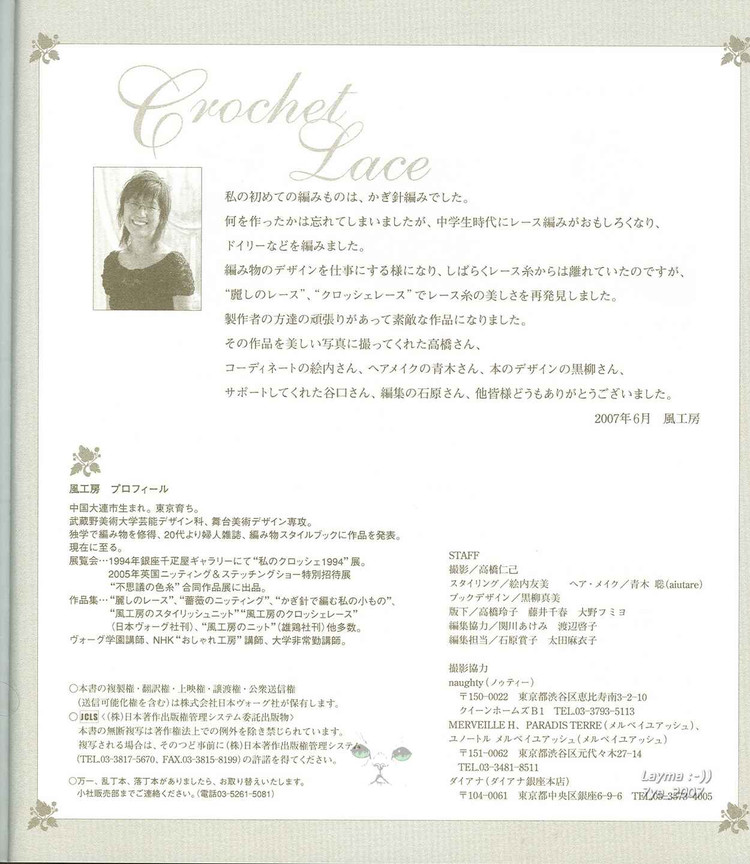 Crochet
Lace
私の初めての編みものは、かぎ針編みでした。
何を作ったかは忘れてしまいましたが、中学生時代にレース編みがおもしろくなり、
ドイリーなどを編みました。
編み物のデザインを仕事にする様になり、しばらくレース糸からは離れていたのですが、
“麗しのレース”、“クロッシェレース”でレース糸の美しさを再発見しました。
製作者の方達の頑張りがあって素敵な作品になりました。
その作品を美しい写真に撮ってくれた高橋さん、
コーディネートの絵内さん、ヘアメイクの青木さん、本のデザインの黒柳さん、
サポートしてくれた谷口さん、編集の石原さん、他皆様どうもありがとうございました。
2007年6月　風工房
風工房　プロフィール
中国大連市生まれ。東京育ち。
武蔵野美術大学芸能デザイン科、舞台美術デザイン専攻。
独学で編み物を修得、20代より婦人雑誌、編み物スタイルブックに作品を発表。
現在に至る。
展覧会…1994年銀座千疋屋ギャラリーにて“私のクロッシェ1994”展。
2005年英国ニッティング＆ステッチングショー特別招待展
“不思議の色糸”合同作品展に出品。
作品集…“麗しのレース”、“薔薇のニッティング”、“かぎ針で編む私の小もの”、
“風工房のスタイリッシュニット”“風工房のクロッシェレース”
（日本ヴォーグ社刊）、“風工房のニット”（雄鶏社刊）他多数。
ヴォーグ学園講師、NHK“おしゃれ工房”講師、大学非常勤講師。
○本書の複製権・翻訳権・上映権・譲渡権・公衆送信権
（送信可能化権を含む）は株式会社日本ヴォーグ社が保有します。
○JCLS〈（株）日本著作出版権管理システム委託出版物〉
本書の無断複写は著作権法上での例外を除き禁じられています。
複写される場合は、そのつど事前に（株）日本著作出版権管理システム
（TEL.03-3817-5670、FAX.03-3815-8199）の許諾を得てください。
○万一、乱丁本、落丁本がありましたら、お取り替えいたします。
小社販売部までご連絡ください。（電話03-5261-5081）
STAFF
撮影／高橋仁己
スタイリング／絵内友美　ヘア・メイク／青木 聡（aiutare）
ブックデザイン／黒柳真美
版下／高橋玲子　藤井千春　大野フミヨ
編集協力／関川あけみ　渡辺啓子
編集担当／石原賞子　太田麻衣子
撮影協力
naughty（ノゥティー）
〒150-0022　東京都渋谷区恵比寿南3-2-10
クイーンホームズB1　TEL.03-3793-5113
MERVEILLE H、PARADIS TERRE（メルベイユアッシュ）、
ユノートル メルベイユアッシュ（メルベイユアッシュ）
〒151-0062　東京都渋谷区元代々木27-14
TEL.03-3481-8511
ダイアナ（ダイアナ銀座本店）
〒104-0061　東京都中央区銀座6-9-6　TEL.03-3573-4005
Layma :-))
7ya 2007